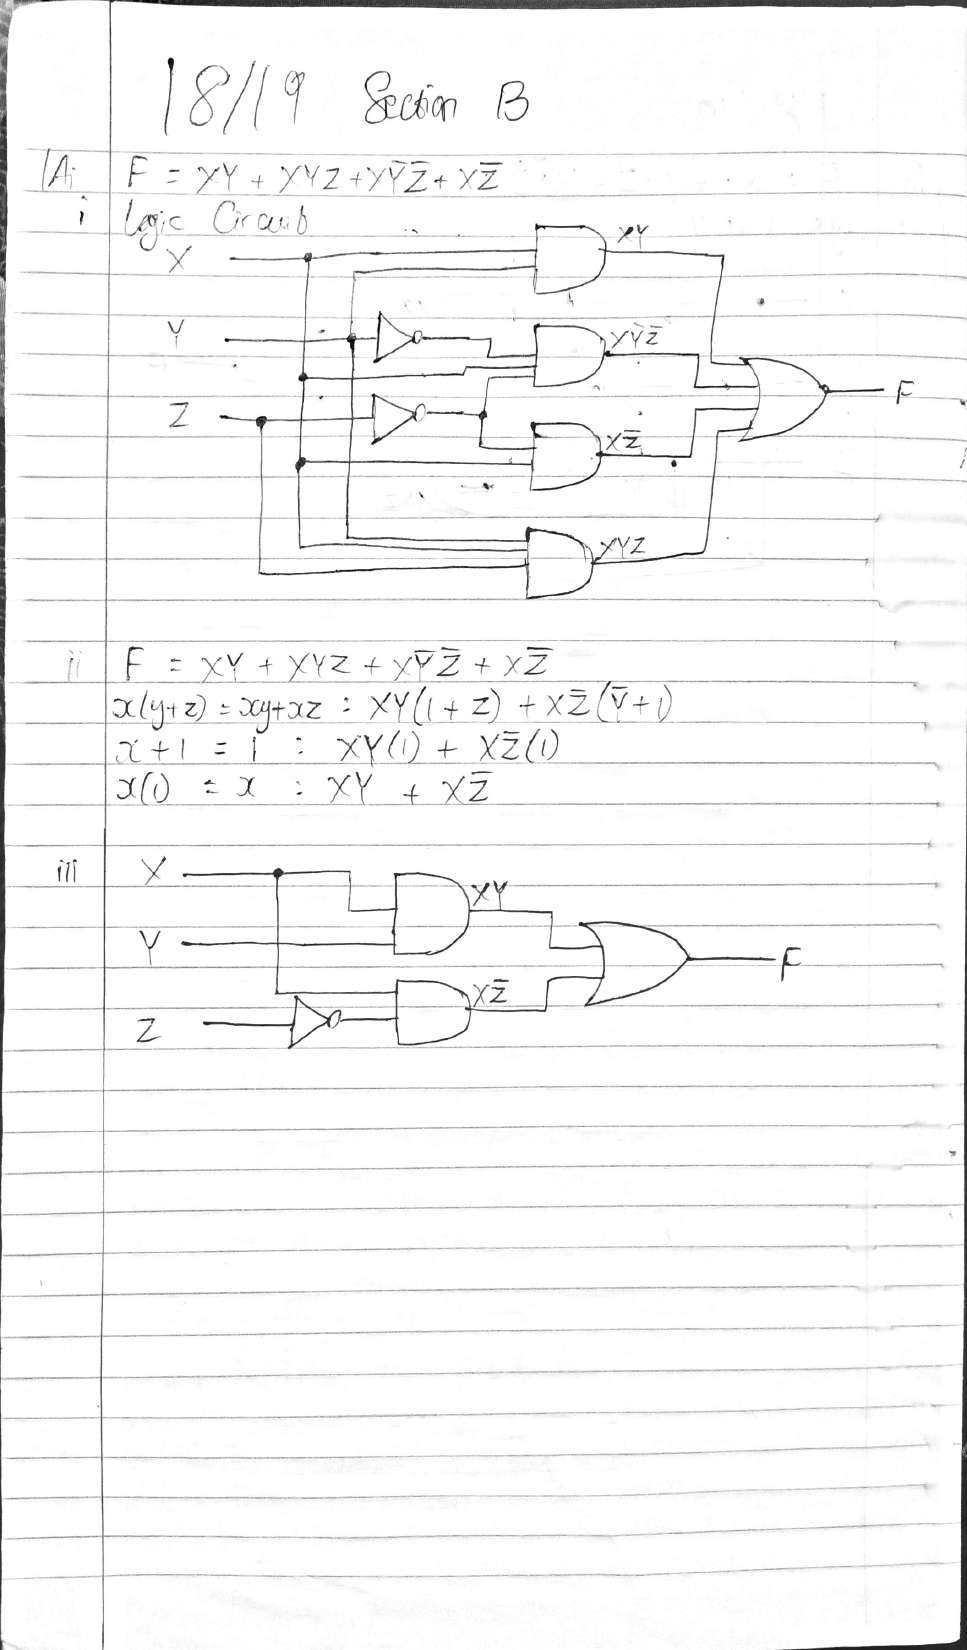 18/19 Section B
1Ai F = XY + XYZ + XȲZ̄ + XZ̄
i Logic Circuit
X
XY
Y
XȲZ̄
F
Z
XZ̄
XYZ
ii F = XY + XYZ + XȲZ̄ + XZ̄
x(y+z) = xy+xz : XY(1+Z) + XZ̄(Ȳ+1)
x+1 = 1 : XY(1) + XZ̄(1)
x(1) = x : XY + XZ̄
iii X
XY
Y
F
XZ̄
Z